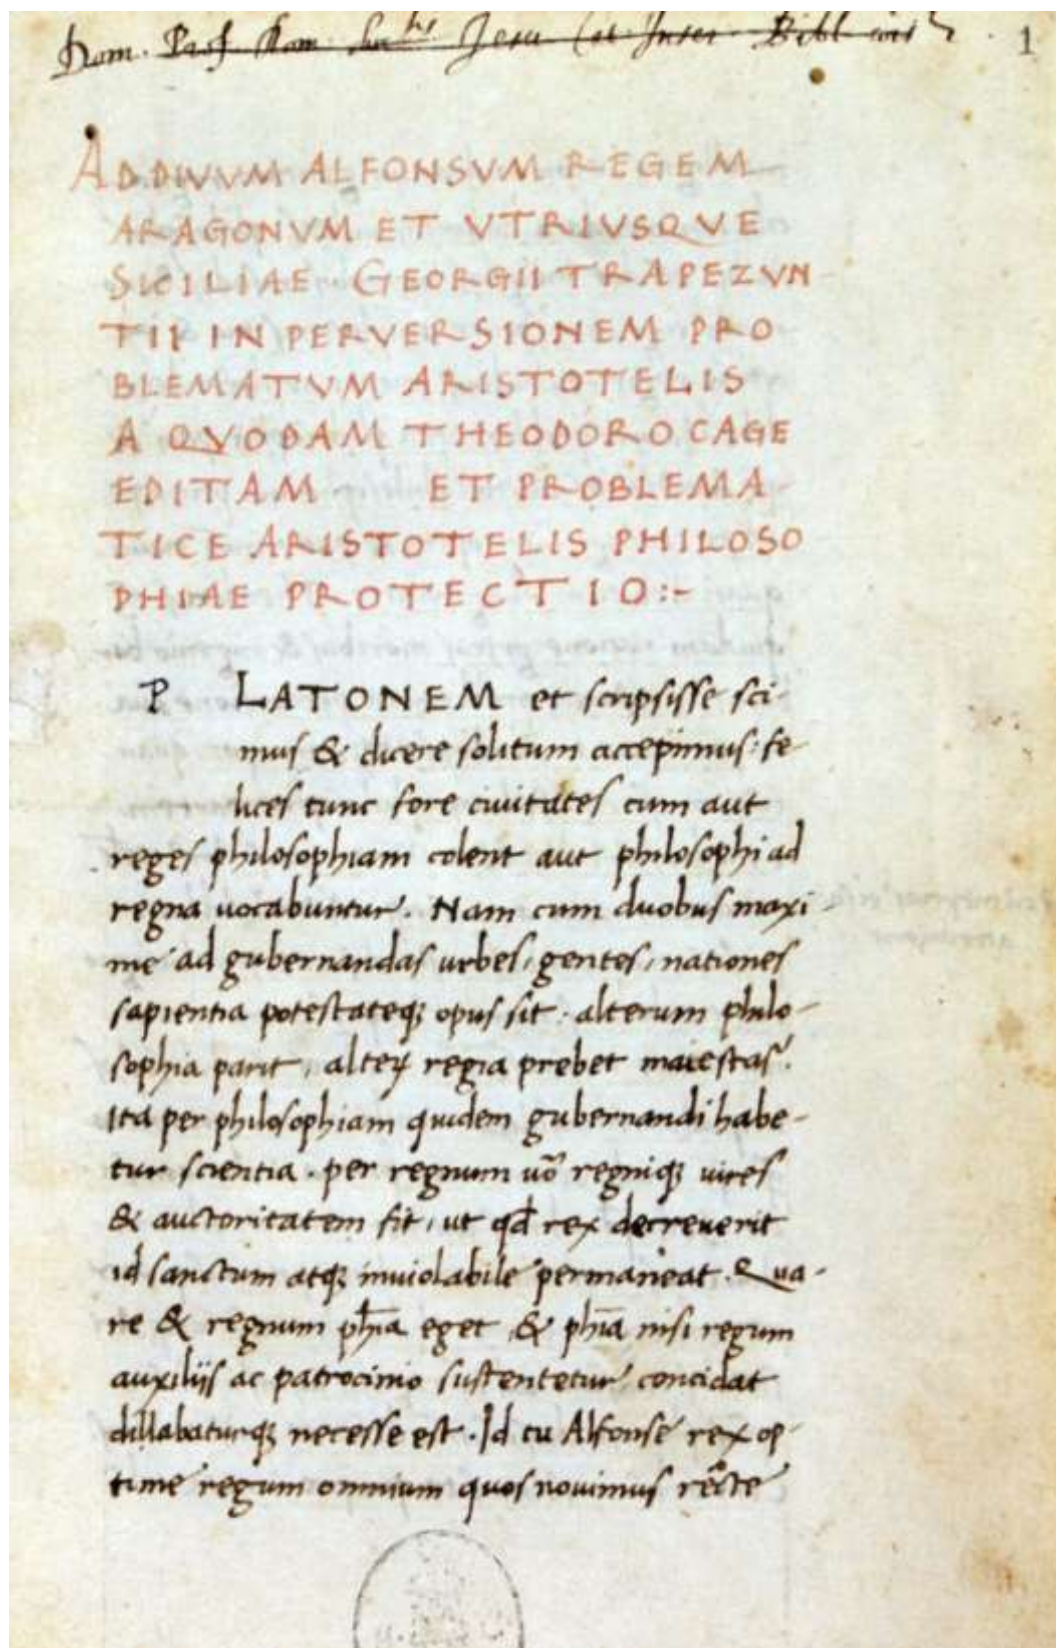 Dom. Prof. Rom. Jesu Inser. Bibl. 1
AD DIVVM ALFONSVM REGEM
ARAGONVM ET VTRIVSQVE
SICILIAE · GEORGII TRAPEZVN-
TII IN PERVERSIONEM PRO
BLEMATVM ARISTOTELIS
A QVODAM THEODORO CAGE
EDITAM ET PROBLEMA-
TICE ARISTOTELIS PHILOSO
PHIAE PROTECTIO:-
P LATONEM et scripsisse sci-
mus & dicere solitum accepimus: fe-
lices tunc fore ciuitates cum aut
reges philosophiam colent aut philosophi ad
regna uocabuntur. Nam cum duobus maxi-
me ad gubernandas urbes, gentes, nationes
sapientia potestateq; opus sit. alterum philo-
sophia parit, alteꝝ regia prebet maiestas.
Ita per philosophiam quidem gubernandi habe-
tur scientia. per regnum uõ regniq; uires
& auctoritatem fit, ut qđ rex decreuerit
id sanctum atq; inuiolabile permaneat. Qua-
re & regnum phīa eget & phīa nisi regum
auxilijs ac patrocinio sustentetur concidat
dillabaturq; necesse est. Id tu Alfonse rex op-
time regum omnium quos nouimus recte